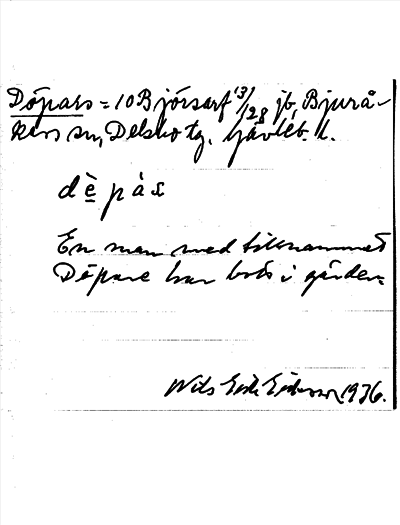 Döpars = 10 Bjørsarf 13/128 jb, Bjurå-
kers sn, Delsbo tg. Gävleb. l.
dèpàs
En man med tillnamnet
Döpare har bott i gården.
Nils Erik Eriksson 1936.